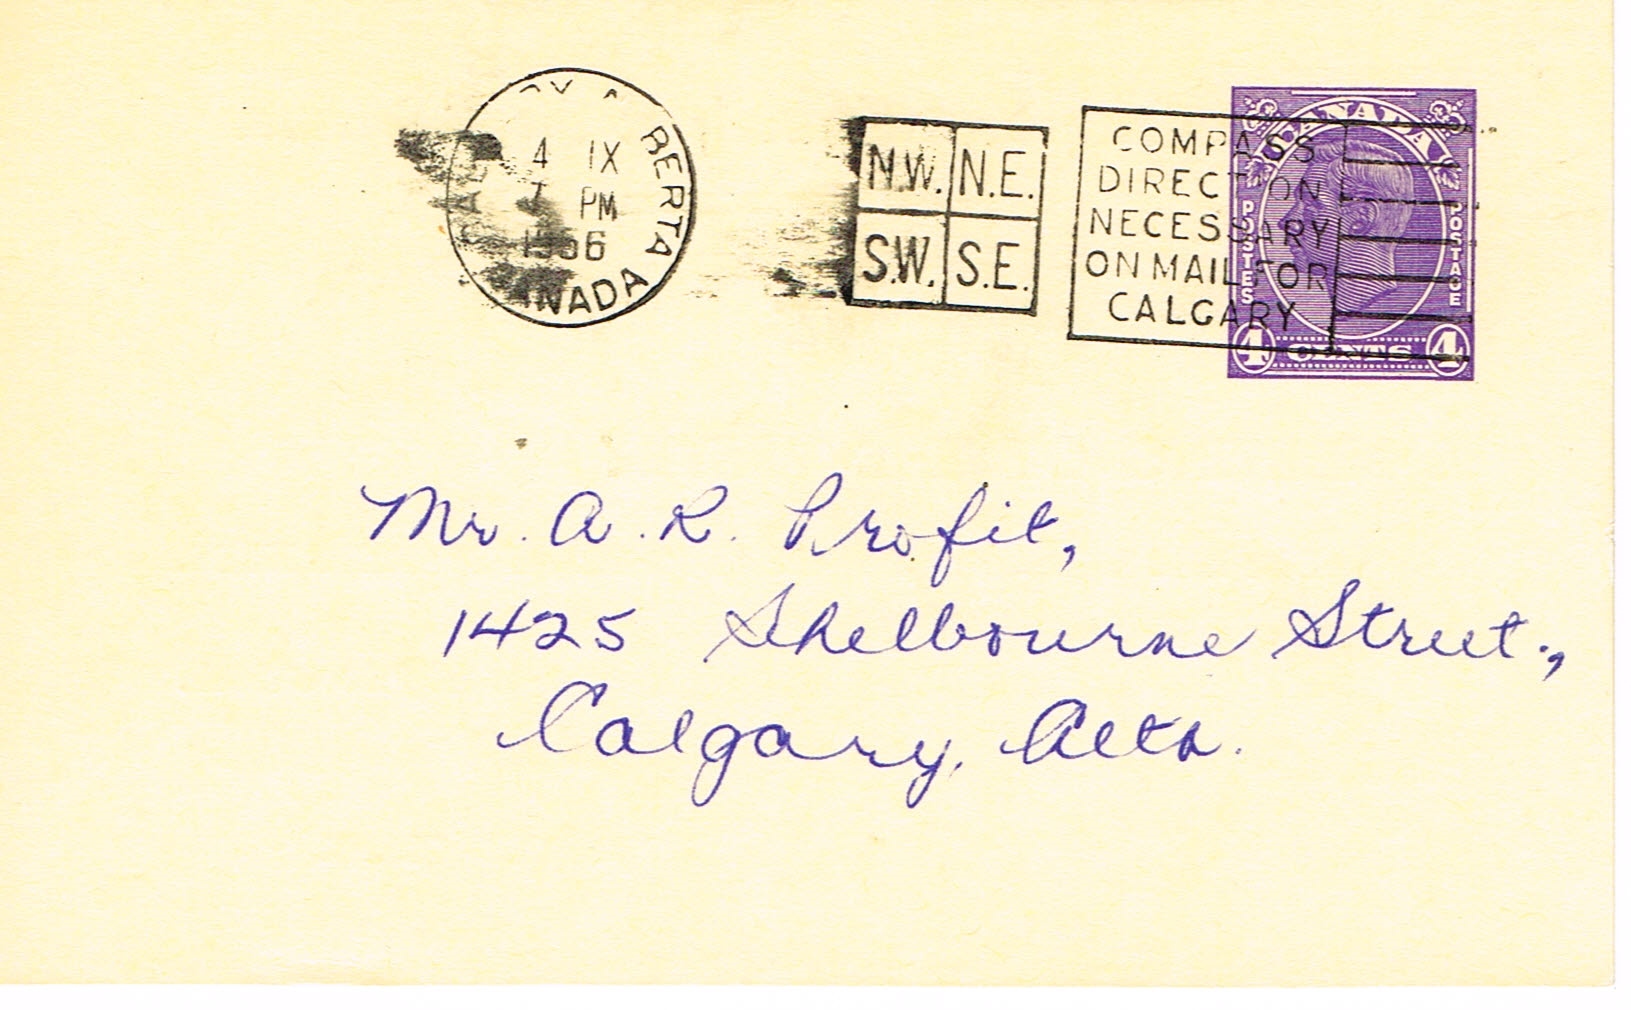 4 IX
7 PM
1956
BERTA
NADA
N.W. N.E.
S.W. S.E.
COMPASS
DIRECTION
NECESSARY
ON MAIL FOR
CALGARY
CANADA
POSTES
POSTAGE
4 CENTS 4
Mr. A. R. Profit,
1425 Shelbourne Street.,
Calgary, Alta.